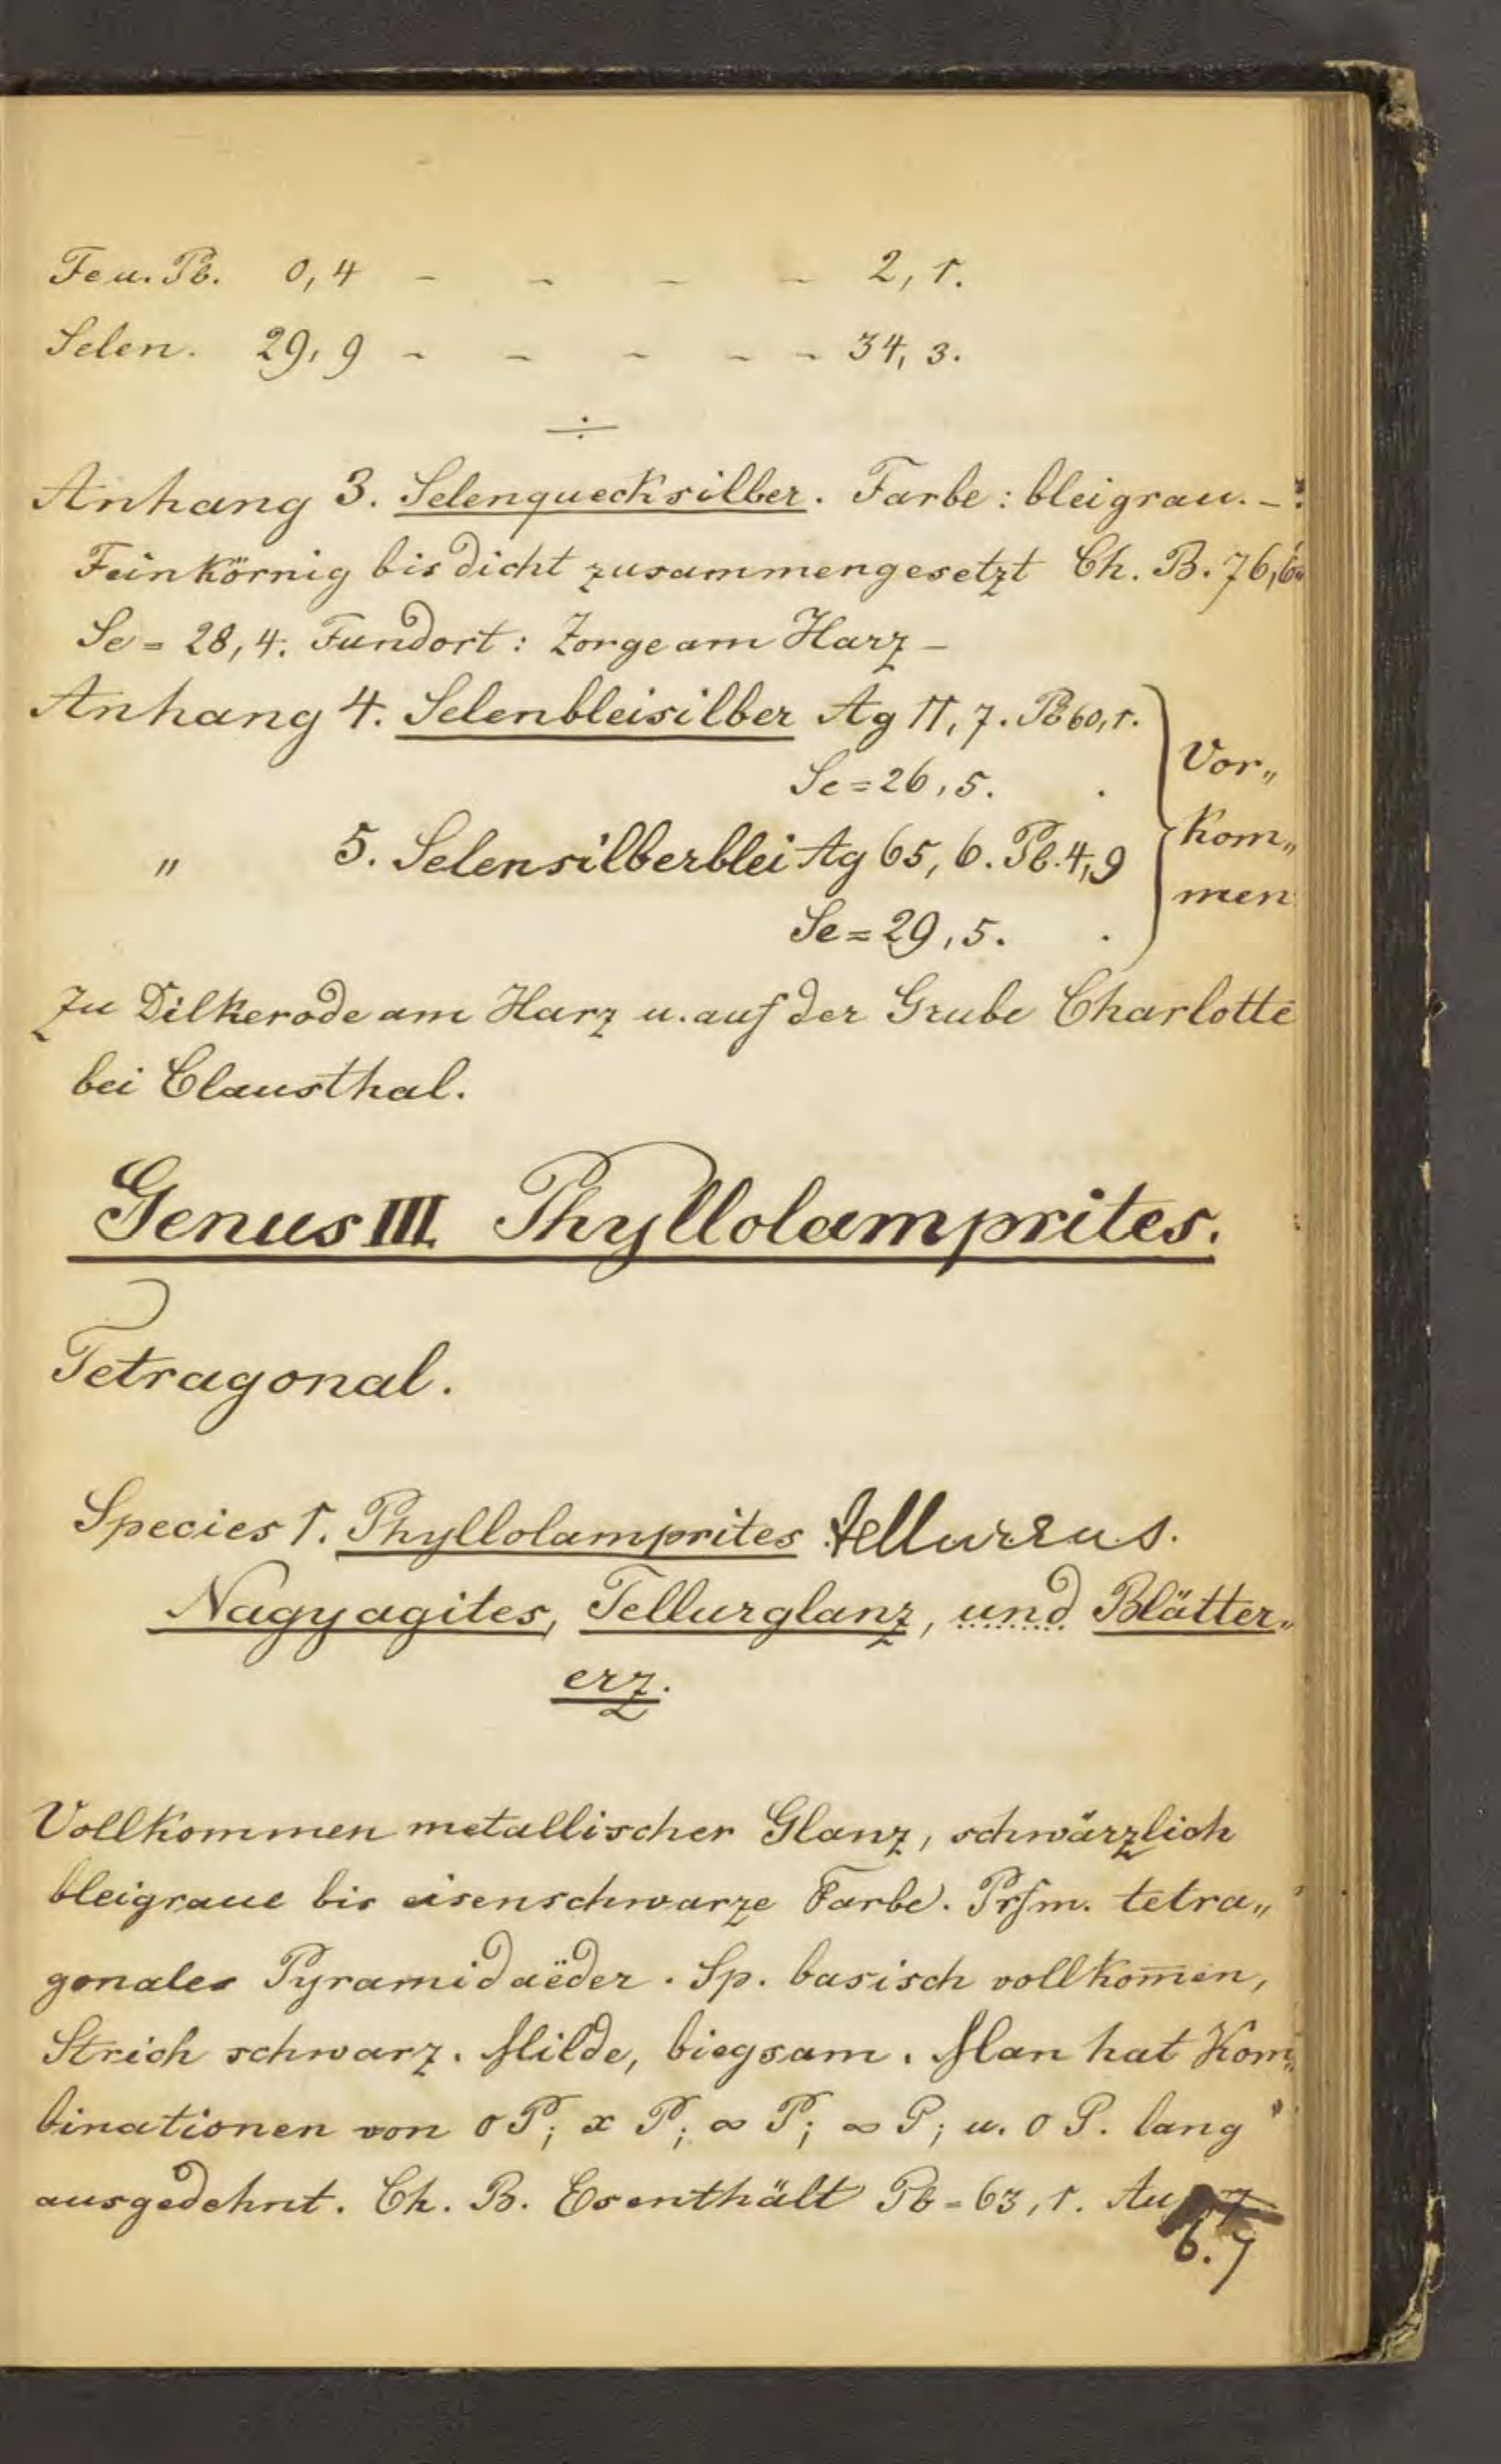 Fe u. Pb. 0,4 - - - - 2, 1.
Selen. 29, 9 - - - - - 34, 3.
Anhang 3. Selenquecksilber. Farbe: bleigrau. -
Feinkörnig bis dicht zusammengesetzt Ch. B. 76,6
Se = 28, 4. Fundort: Zorge am Harz -
Anhang 4. Selenbleisilber Ag 11, 7. Pb 60, 1.
Se = 26, 5.
Vor„
„ 5. Selensilberblei Ag 65, 6. Pb. 4,9
kom„
men
Se = 29, 5.
Zu Dilkerode am Harz u. auf der Grube Charlotte
bei Clausthal.
Genus III. Phyllolamprites.
Tetragonal.
Species 1. Phyllolamprites tellureus.
Nagyagites, Tellurglanz, und Blätter„
erz.
Vollkommen metallischer Glanz, schwärzlich
bleigraue bis eisenschwarze Farbe. Prsm. tetra„
gonales Pyramidaëder. Sp. basisch vollkom̄en,
Strich schwarz. Milde, biegsam. Man hat Kom„
binationen von o P; x P; ∞ P; ∞ P; u. o P. lang
ausgedehnt. Ch. B. Es enthält Pb = 63, 1. Au
6.7